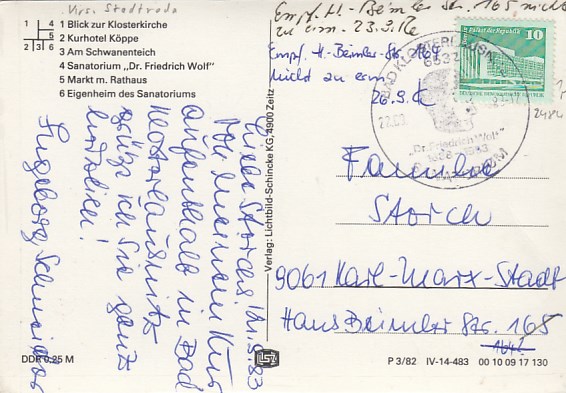 Krs. Stadtroda
1 Blick zur Klosterkirche
2 Kurhotel Köppe
3 Am Schwanenteich
4 Sanatorium „Dr. Friedrich Wolf"
5 Markt m. Rathaus
6 Eigenheim des Sanatoriums
1 4
5
2 3 6
Empf. H.-Beimler Str. 165 nicht
zu erm. 23.9.
Empf. H-Beimler-Str. 164
nicht zu erm
26.9.
Palast der Republik
10
BAD KLOSTERLAUSNITZ
6532
"Dr. Friedrich Wolf"
Liebe Storchs! 21.9.83
Von meinem Kur-
aufenthalt in Bad
Klosterlausnitz
grüße ich Sie ganz
herzlichen!
Ingeborg Schneider
Verlag: Lichtbild-Schincke KG, 4900 Zeitz
Familie
Storch
9061 Karl-Marx-Stadt
Hans Beimler Str. 165
164?
DDR 0,25 M
P 3/82 IV-14-483 00 10 09 17 130